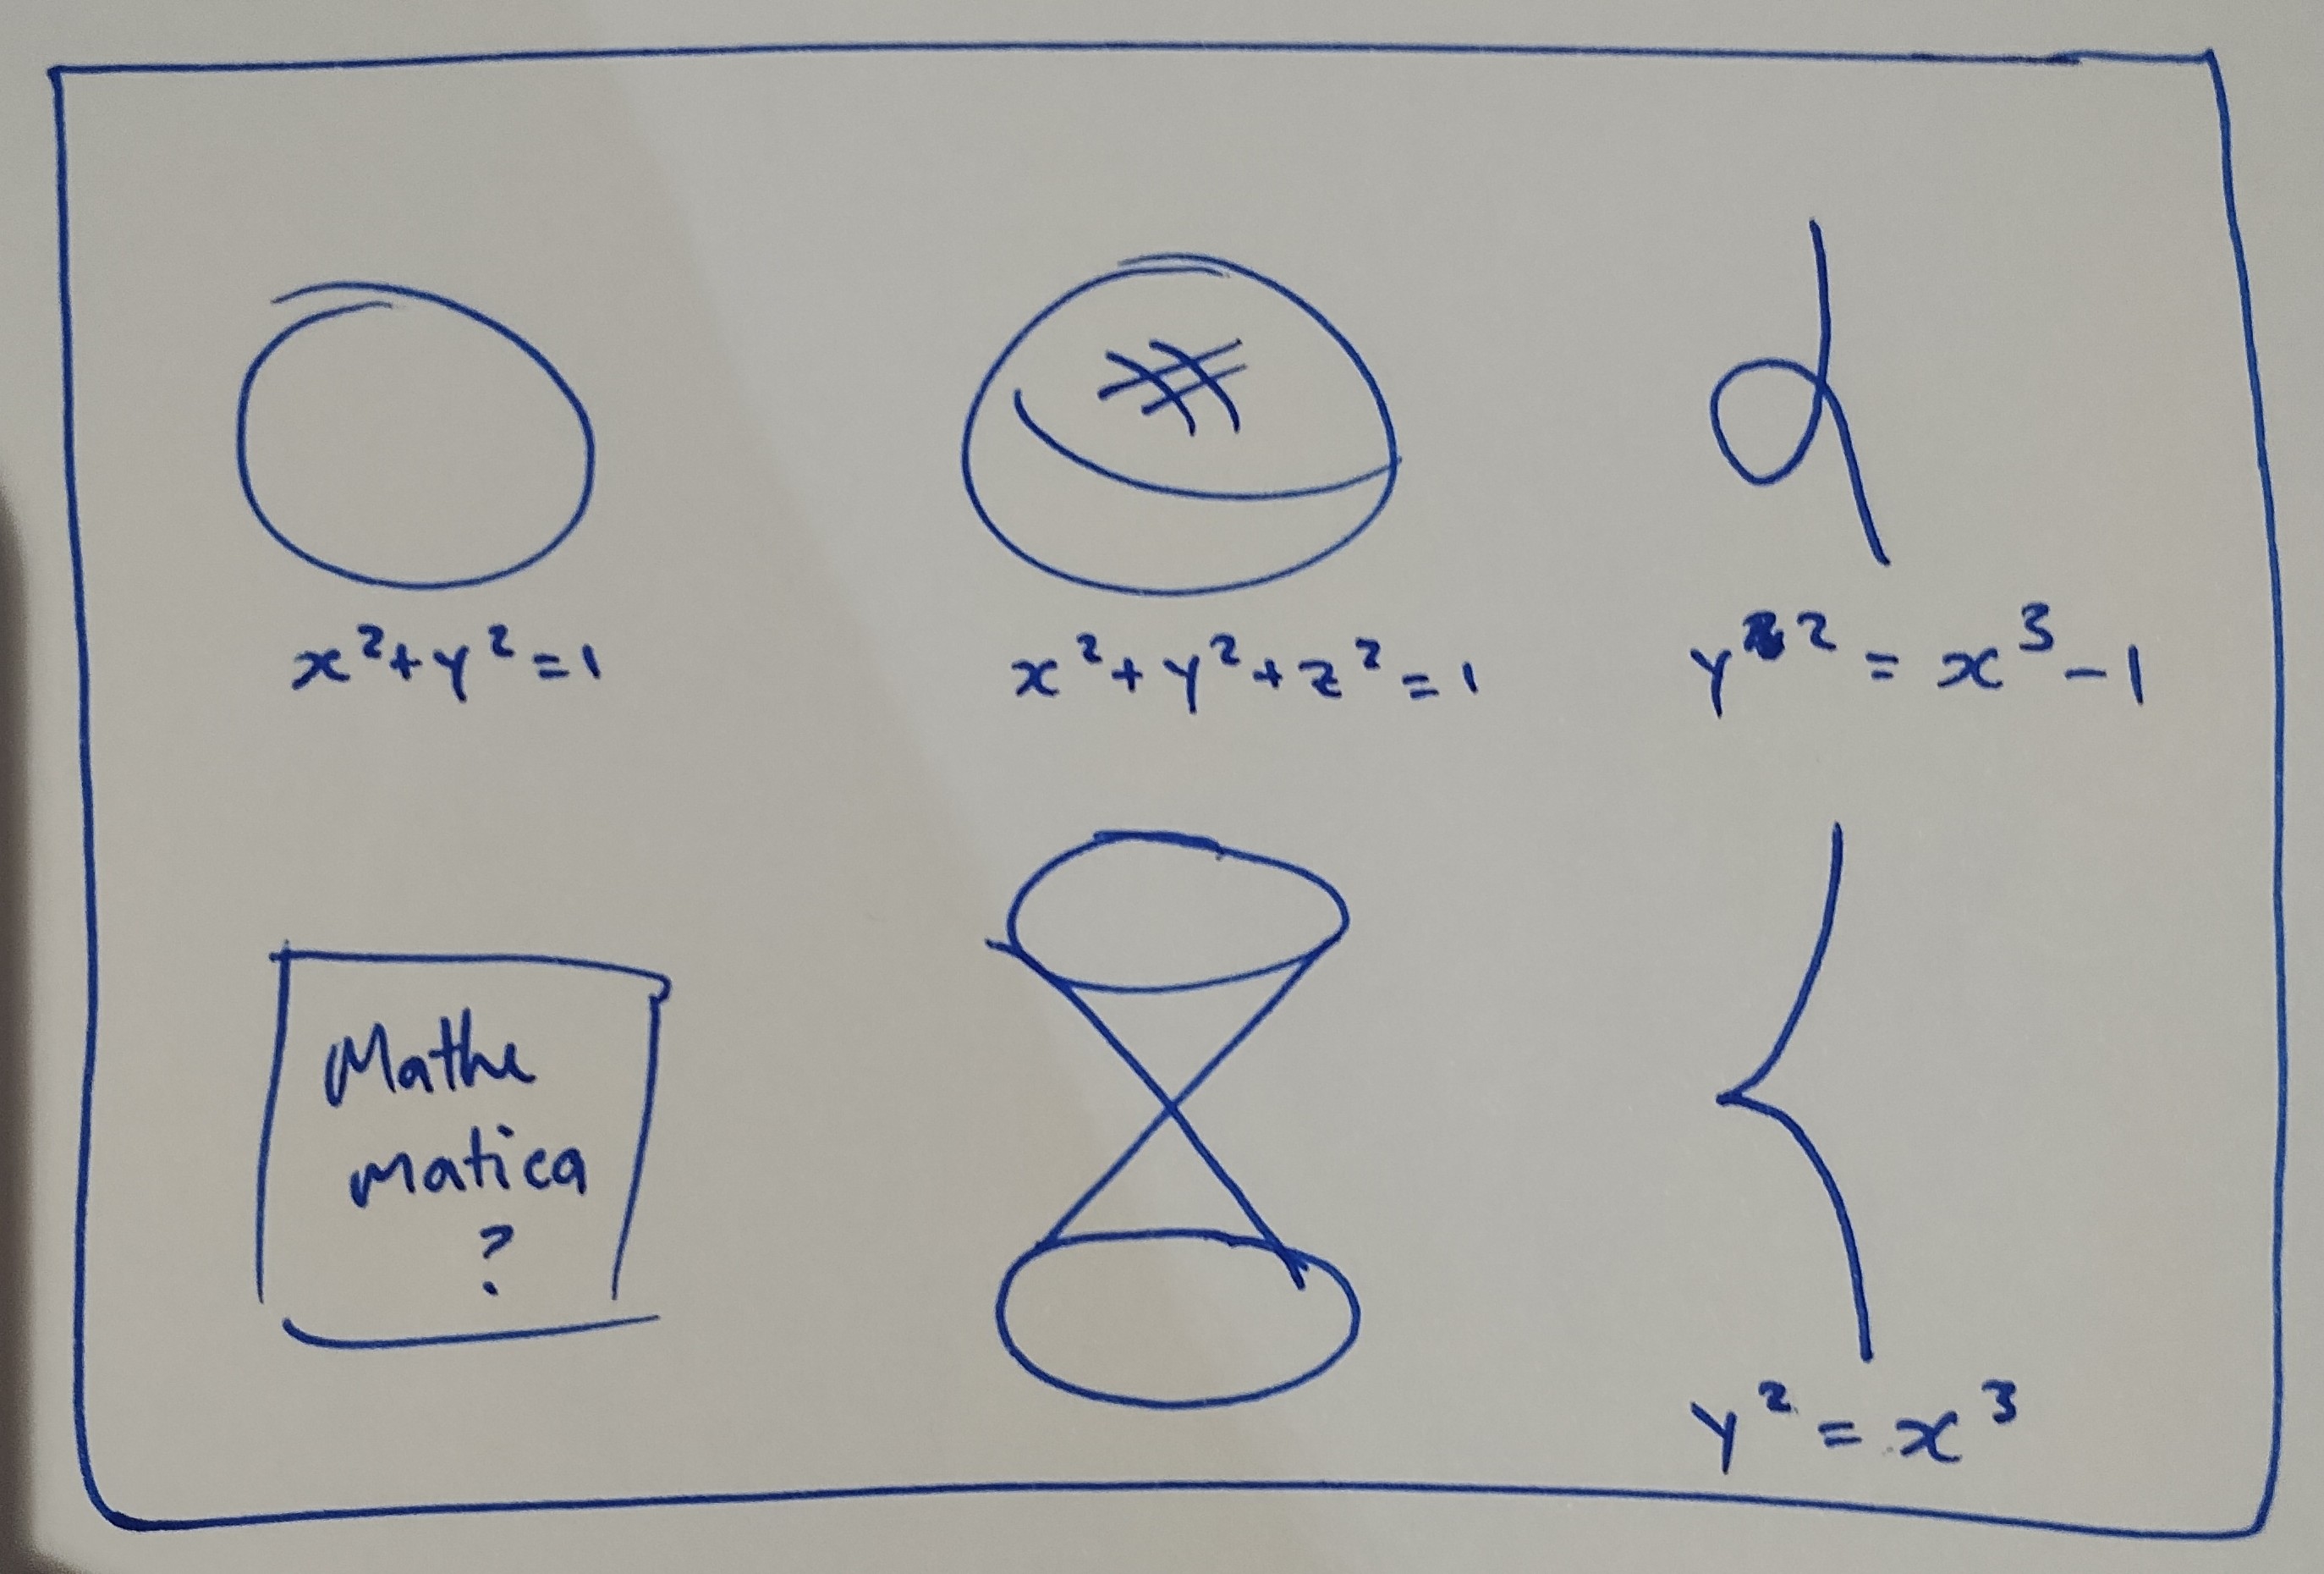 x²+y²=1
x²+y²+z²=1
y²=x³-1
Mathe
matica
?
y²=x³